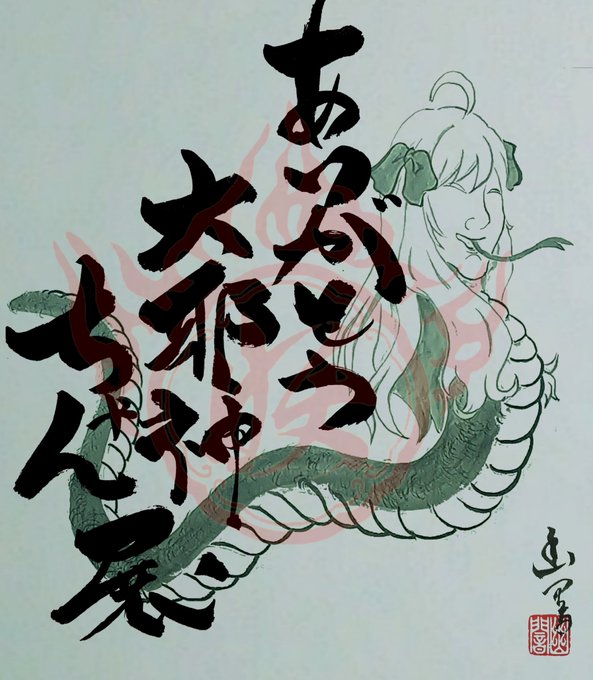 ありがとう
大邪神
ちゃん展